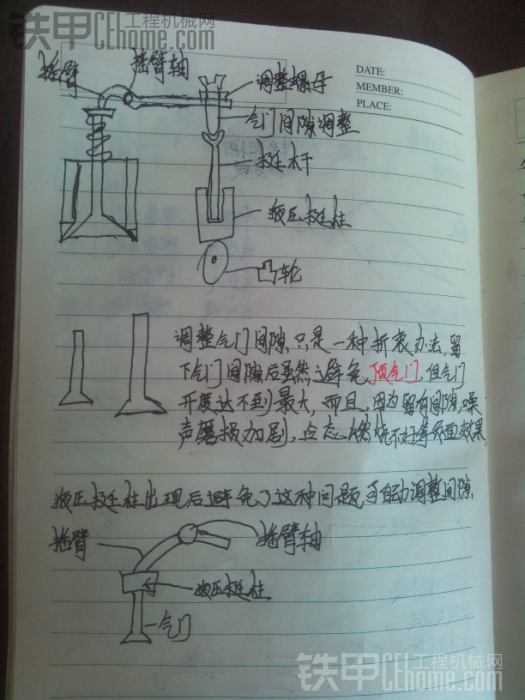 铁甲 工程机械网
CEhome.com
摇臂
摇臂轴
调整螺母
气门间隙调整
挺杆
液压挺柱
凸轮
DATE:
MEMBER:
PLACE:
调整气门间隙,只是一种折衷办法,留
下气门间隙后虽然避免顶气门,但气门
开度达不到最大,而且,因为留有间隙,噪
声磨损加剧,点态燃烧不好等负面效果
液压挺柱出现后避免了这种问题 自动调整间隙.
摇臂
摇臂轴
液压挺柱
气门
铁甲 工程机械网
CEhome.com